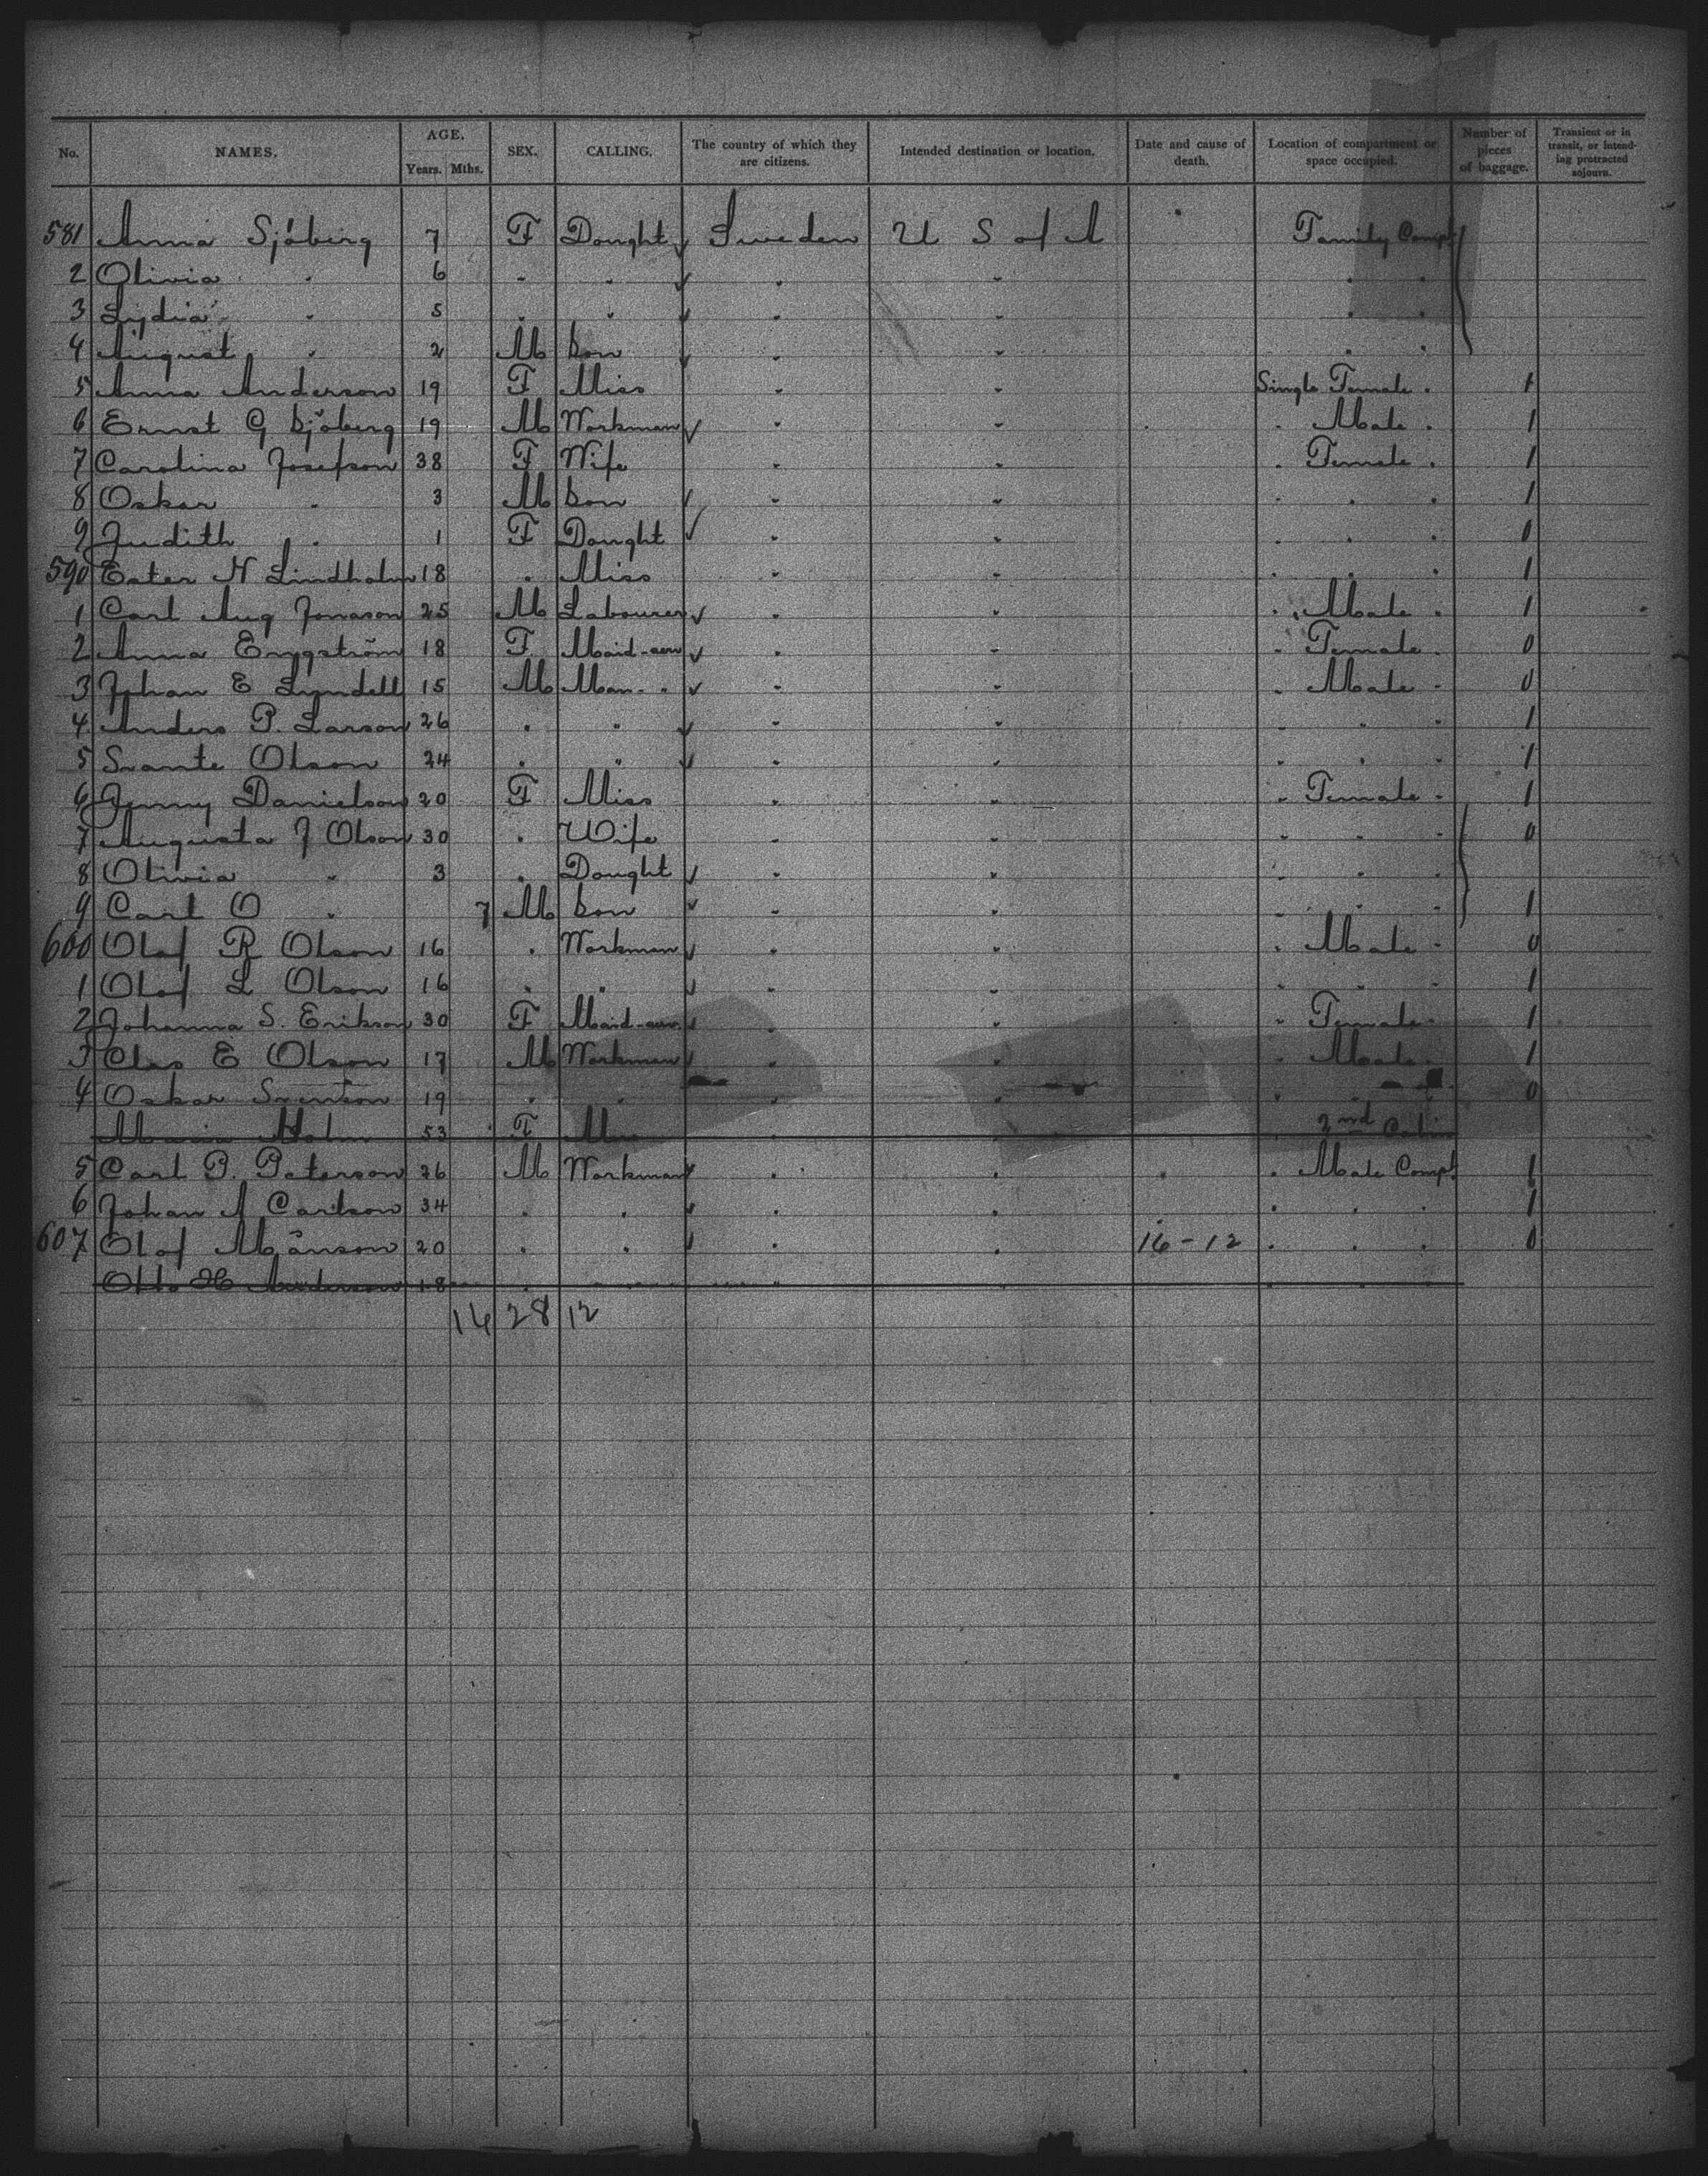 No. NAMES. AGE. Years. Mths. SEX. CALLING. The country of which they are citizens. Intended destination or location. Date and cause of death. Location of compartment or space occupied. Number of pieces of baggage. Transient or in transit, or intending protracted sojourn.
581 Anna Sjöberg 7 F Dought Sweden U S of A Family Compt
2 Olivia " 6 " " " " " "
3 Lydia " 5 " " " " " "
4 August " 2 M Son " " " "
5 Anna Anderson 19 F Miss " " Single Female " 1
6 Ernst G Sjöberg 19 M Workman " " " Male " 1
7 Carolina Josefson 38 F Wife " " " Female " 1
8 Oskar " 3 M Son " " " " " 1
9 Judith " 1 F Dought " " " " " 0
590 Ester N Lindholm 18 " Miss " " " " " 1
1 Carl Aug Jonason 25 M Labourer " " " Male " 1
2 Anna Engström 18 F Maid-serv " " " Female " 0
3 Johan E Lundell 15 M Man - " " " " Male " 0
4 Anders P. Larson 26 " " " " " " " 1
5 Svante Olson 24 " " " " " " " 1
6 Jenny Danielson 20 F Miss " " " Female " 1
7 Augusta J Olson 30 " Wife " " " " " 0
8 Olivia " 3 " Dought " " " " "
9 Carl O " 7 M Son " " " " " 1
600 Olof R Olson 16 " Workman " " " Male " 0
1 Olof L Olson 16 " " " " " " " 1
2 Johanna S. Erikson 30 F Maid-serv. " " " Female " 1
3 Clas E Olson 17 M Workman " " " Male " 1
4 Oskar Svenson 19 " " " " " " 0
Maria Holm 53 F " " 2nd
5 Carl P. Peterson 26 M Workman " " " Male Compt 1
6 Johan A Carlson 34 " " " " " " " 1
607 Olof Månson 20 " " " " 16-12 " " " 0
Otto H Anderson 18 " " " " " " "
16 28 12